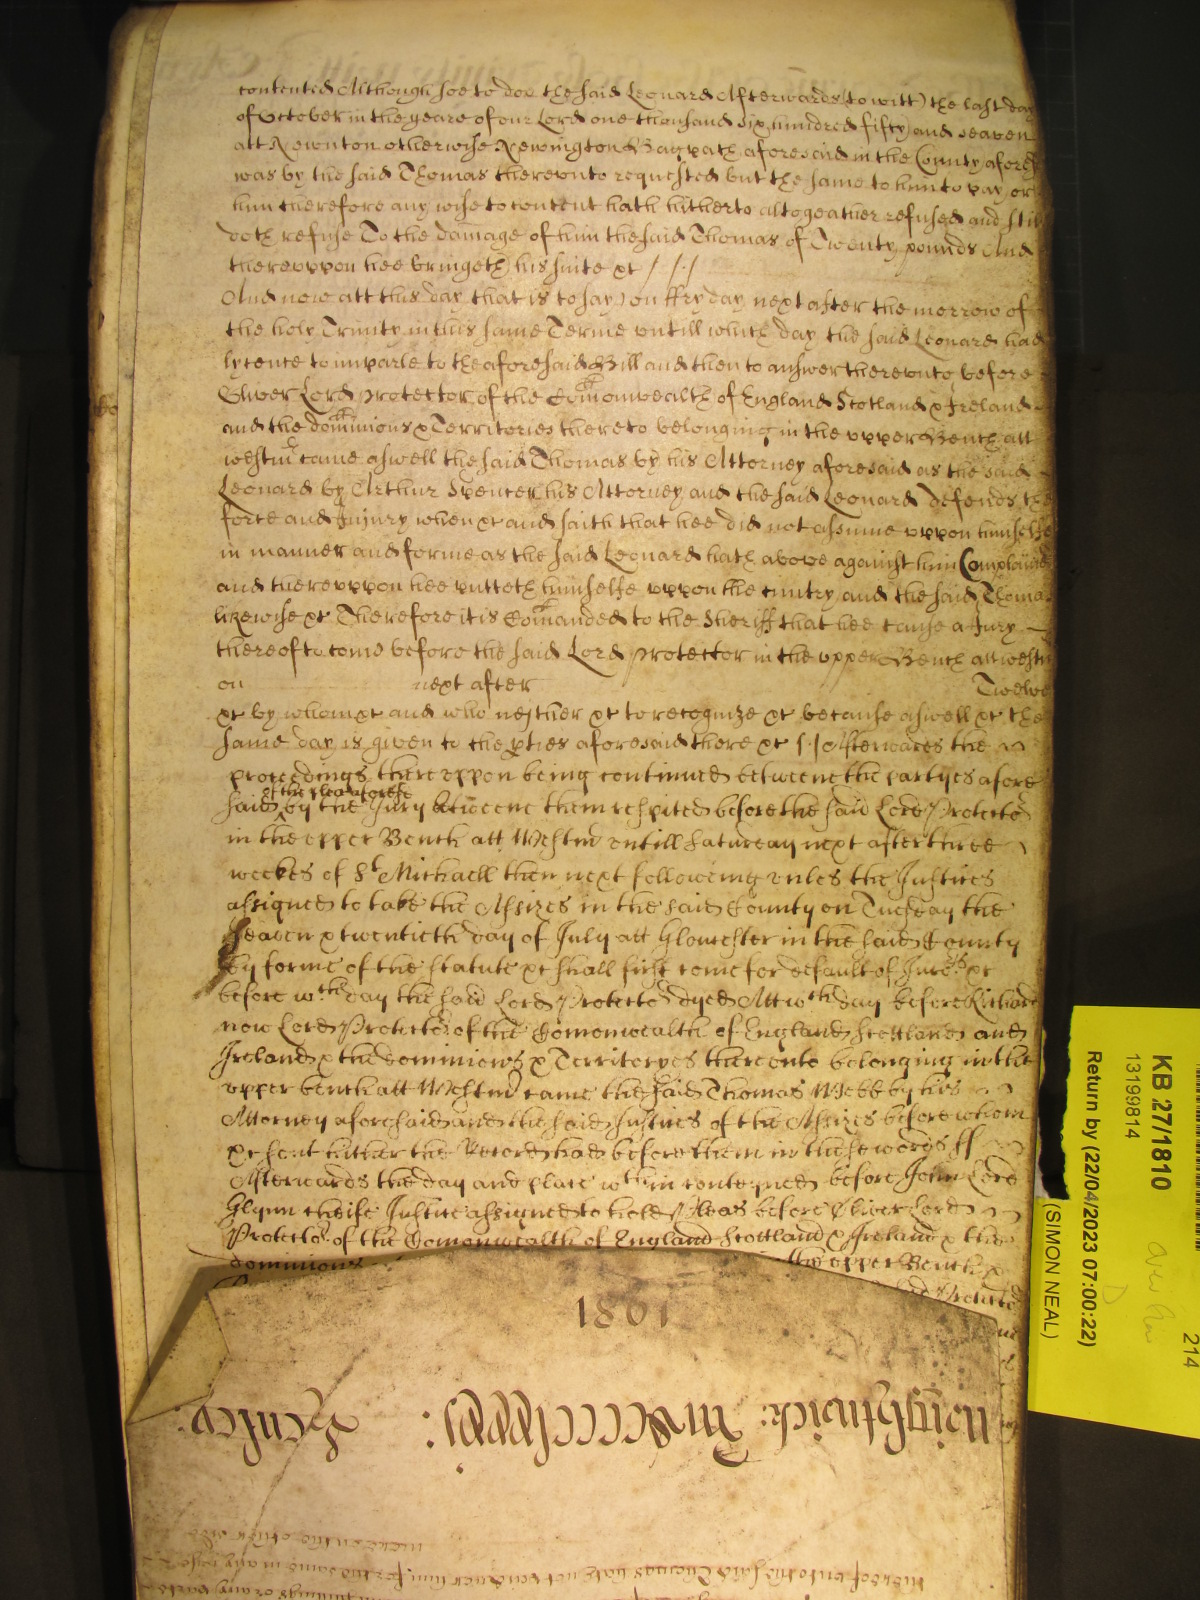 contented Although soe to doe the said Leonard Afterwards (to witt) the last day
of October in the yeare of our Lord one thousand six hundred fifty and seaven
att Newnton otherwise Newington Bagpath aforesaid in the County afores
was by the said Thomas therevnto requested but the same to him to pay or
him therefore any wise to content hath hitherto altogeather refused and still
doth refuse To the damage of him the said Thomas of Twenty pounds And
therevppon hee bringeth his suite &c / /./
And now att this day that is to say on ffryday next after the morrow of
the holy Trinity in this same Terme vntill which day the said Leonard had
lycence to imparle to the aforesaid Bill and then to answer therevnto before
Oliver Lord Protector of the Comonwealth of England Scotland & Ireland
and the dominions & Territories thereto belonging in the vpper Bench att
westm came aswell the said Thomas by his Attorney aforesaid as the said
Leonard by Arthur Spencer his Attorney and the said Leonard defends the
force and Injury when &c and saith that hee did not assume vppon himselfe
in manner and forme as the said Leonard hath above against him Complained
and therevppon hee putteth himselfe vppon the cuntry and the said Thomas
likewise &c Therefore it is Comanded to the Sheriff that hee cause a Jury
thereof to come before the said Lord Protector in the vpper Bench att westm
on next after Twelve
&c by whom &c and who neither &c to recognize &c because aswell &c the
same day is given to the pties aforesaid there &c /./ Afterwards the
proceedings therevppon being continued betweene the partyes afore
of the plea aforesd
said by the Jury betweene them respited before the said Lord Protector
in the vpper Bench att Westm vntill Saturday next after three
weekes of St Michaell then next following vnles the Justices
assigned to take the Assizes in the said County on Tuesday the
seaven & twentieth day of July att Gloucester in the said County
by forme of the statute &c shall first come for default of Jurors &c
before wch day the said Lord Protector dyed Att wch day before Richard
now Lord Protector of the Comonwealth of England Scottland and
Ireland & the dominions & Territoryes therevnto belonging in the
vpper bench att Westm came the said Thomas Webb by his
Attorney aforesaid and the said Justices of the Assizes before whom
&c sent hither the Record had before them in these words ss
Afterwards the day and place wthin conteyned before John Lord
Glynn cheife Justice assigned to hold Pleas before Oliver Lord
Protector of the Comonwealth of England Scottland & Ireland & the
dominions the vpper Bench &
Protector
1801
KB 27/1810
13199814
Return by (22/04/2023 07:00:22)
(SIMON NEAL)
214